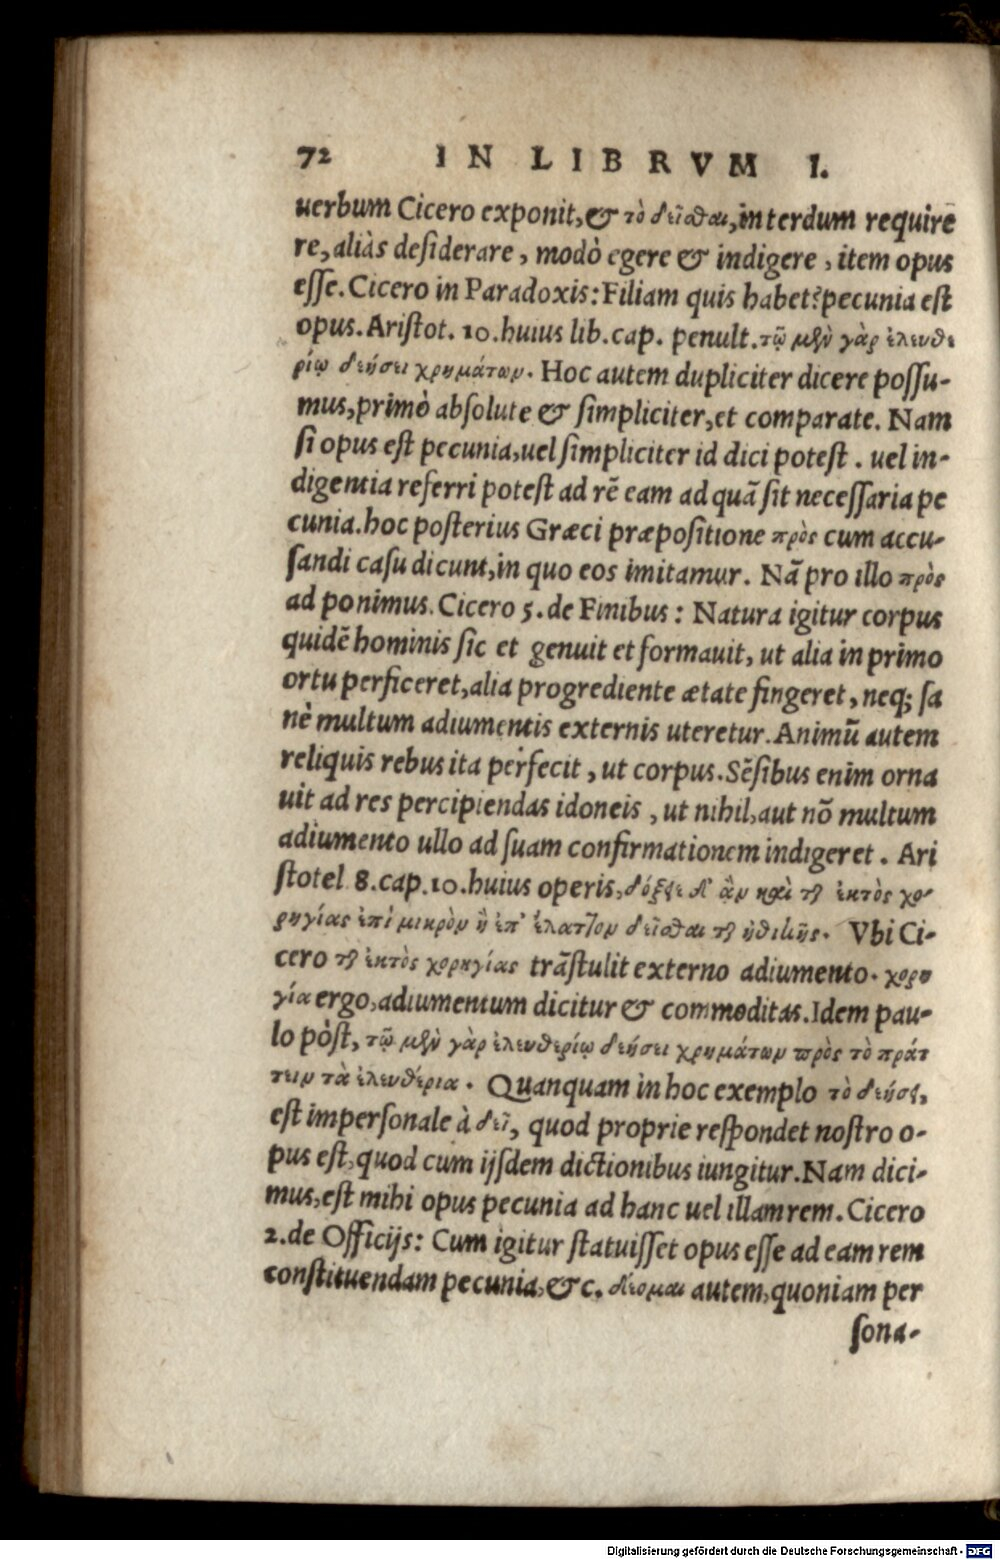 72 IN LIBRVM I.
uerbum Cicero exponit, & τὸ δεῖσθαι, interdum requirē
re, aliàs desiderare, modò egere & indigere, item opus
esse. Cicero in Paradoxis: Filiam quis habet? pecunia est
opus. Aristot. 10. huius lib. cap. penult. τῷ μὲν γὰρ ἐλευθε
ρίῳ δεήσει χρημάτων. Hoc autem dupliciter dicere possu-
mus, primò absolute & simpliciter, et comparate. Nam
si opus est pecunia, uel simpliciter id dici potest. uel in-
digentia referri potest ad rē eam ad quā sit necessaria pe
cunia. hoc posterius Græci præpositione πρὸς cum accu-
sandi casu dicunt, in quo eos imitamur. Nā pro illo πρὸς
ad ponimus. Cicero 5. de Finibus: Natura igitur corpus
quidē hominis sic et genuit et formauit, ut alia in primo
ortu perficeret, alia progrediente ætate fingeret, neq; sa
nè multum adiumentis externis uteretur. Animū autem
reliquis rebus ita perfecit, ut corpus. Sēsibus enim orna
uit ad res percipiendas idoneis, ut nihil, aut nō multum
adiumento ullo ad suam confirmationem indigeret. Ari
stotel 8. cap. 10. huius operis, δόξξε δ' ἂν καὶ τῆς ἐκτὸς χο-
ρηγίας ἐπὶ μικρὸν ἢ ἐπ' ἔλαττον δεῖσθαι τῆς ἠθικῆς. Vbi Ci-
cero τῆς ἐκτὸς χορηγίας trāstulit externo adiumento. χορη
γία ergo, adiumentum dicitur & commoditas. Idem pau-
lo pòst, τῷ μὲν γὰρ ἐλευθερίῳ δεήσει χρημάτων πρὸς τὸ πράτ
τειν τὰ ἐλευθέρια. Quanquam in hoc exemplo τὸ δεήσει,
est impersonale à δεῖ, quod proprie respondet nostro o-
pus est, quod cum ijsdem dictionibus iungitur. Nam dici-
mus, est mihi opus pecunia ad hanc uel illam rem. Cicero
2. de Officijs: Cum igitur statuisset opus esse ad eam rem
constituendam pecunia, & c. δέομαι autem, quoniam per
sona-
Digitalisierung gefördert durch die Deutsche Forschungsgemeinschaft - DFG